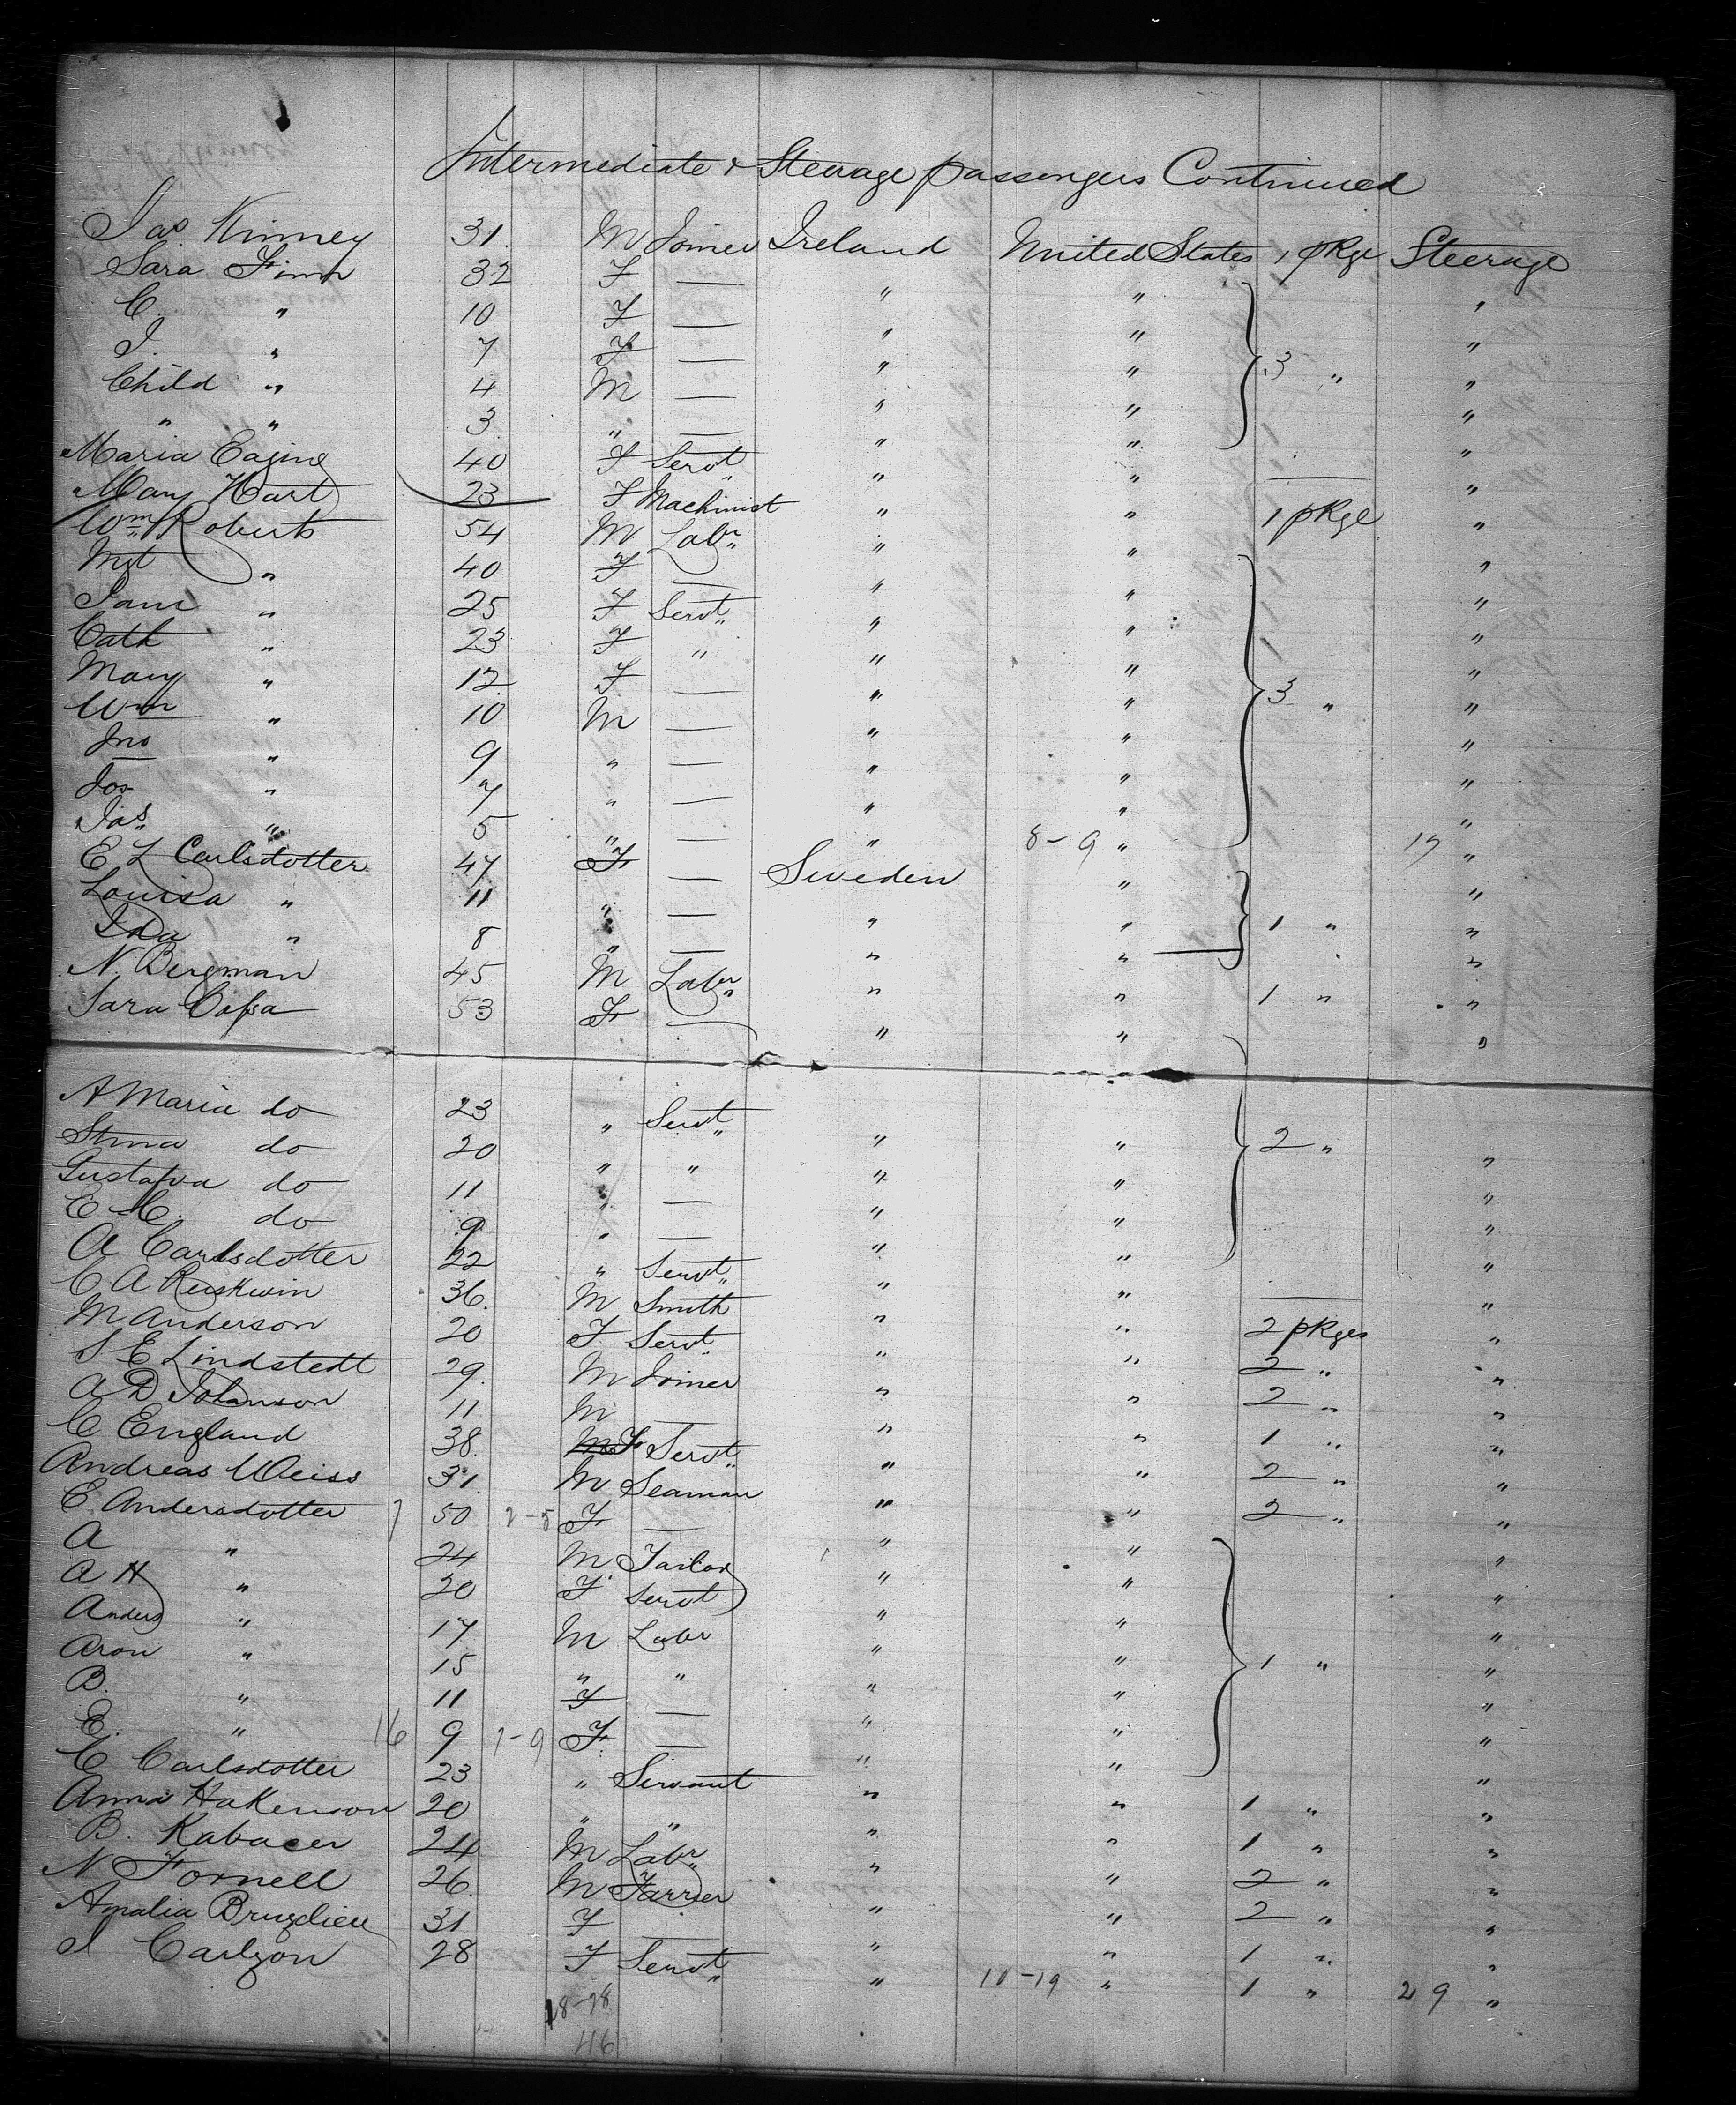 Intermediate & Steerage passengers Continued
Jas. Kinney 31. M Joiner Ireland United States 1 pkge Steerage
Sara Finn 32 F — " " "
C. " 10 F — " " "
J. " 7 F — " " 3 " "
Child " 4 M — " " "
" " 3 " — " " "
Maria Eagine 40 F Servt " " — "
Mary Hart 23 F Machinist " " 1 pkge "
Wm Roberts 54 M Labr " " "
Mgt " 40 F — " " "
Jane " 25 F Servt " " "
Cath " 23 F " " " "
Mary " 12 F — " " 3 " "
Wm " 10 M — " " "
Jno " 9 " — " " "
Jos " 7 " — " " "
Jas " 5 " — " 8-9 " 17 "
E L Carlsdotter 47 F — Sweden " "
Louisa " 11 " — " " 1 " "
Ida " 8 " — " " "
N. Bergman 45 M Labr " " 1 " "
Sara Cassa 53 F — " " "
A Maria do 23 " Servt " " 2 " "
Stina do 20 " " " " "
Gustafva do 11 " — " " "
E C. do 9 " — " " "
A Carlsdotter 22 " Servt " " — "
C A 36. M Smith " " 2 pkges "
M Anderson 20 F Servt " " 2 " "
S E Lindstedt 29. M Joiner " " 2 " "
A D Johanson 11 M — " " 1 " "
C England 38. F Servt " " 2 " "
Andreas Weiss 31. M Seaman " " 2 " "
E Andersdotter 50 2-8 F — " " "
A " 24 M Tailor " " "
A H " 20 F Servt " " "
Anders " 17 M Labr " " "
Aron " 15 " " " " 1 " "
B. " 11 F — " " "
E. " 16 9 1-9 F — " " "
C Carlsdotter 23 " Servant " " 1 " "
Anna Hakenson 20 " " " " 1 " "
B. Kabacer 24 M Labr " " 2 " "
N Fornell 26. M Farrier " " 2 " "
Amalia 31 F — " " 1 " "
J Carlzon 28 F Servt " 10-19 " 1 " 29 "
18-28
46